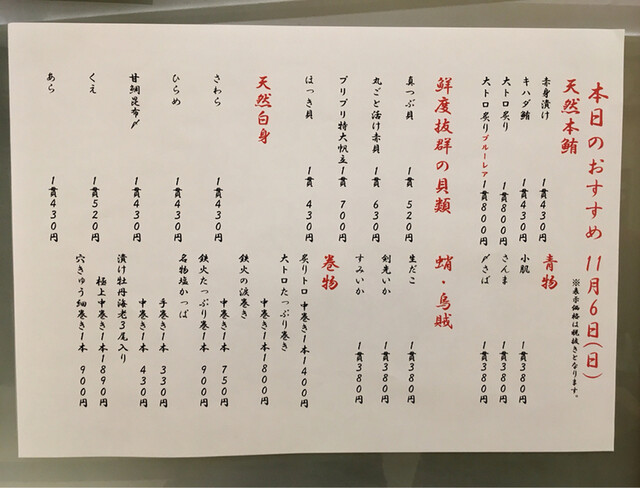 本日のおすすめ 11月6日(日)
※表示価格は税抜きとなります。
天然本鮪
赤身漬け 1貫430円
キハダ鮪 1貫430円
大トロ炙り 1貫800円
大トロ炙りブルーレア 1貫800円
鮮度抜群の貝類
真つぶ貝 1貫 520円
丸ごと活け赤貝 1貫 630円
プリプリ特大帆立 1貫 700円
ほっき貝 1貫 430円
天然白身
さわら 1貫430円
ひらめ 1貫430円
甘鯛昆布〆 1貫430円
くえ 1貫520円
あら 1貫430円
青物
小肌 1貫380円
さんま 1貫380円
〆さば 1貫380円
蛸・烏賊
生だこ 1貫380円
剣先いか 1貫380円
すみいか 1貫380円
巻物
炙りトロ 中巻き1本1400円
大トロたっぷり巻き
中巻き1本1800円
鉄火の涙巻き
中巻き1本 750円
鉄火たっぷり巻1本 900円
名物塩かっぱ
手巻き1本 330円
中巻き1本 430円
漬け牡丹海老3尾入り
極上中巻き1本1890円
穴きゅう細巻き1本 900円